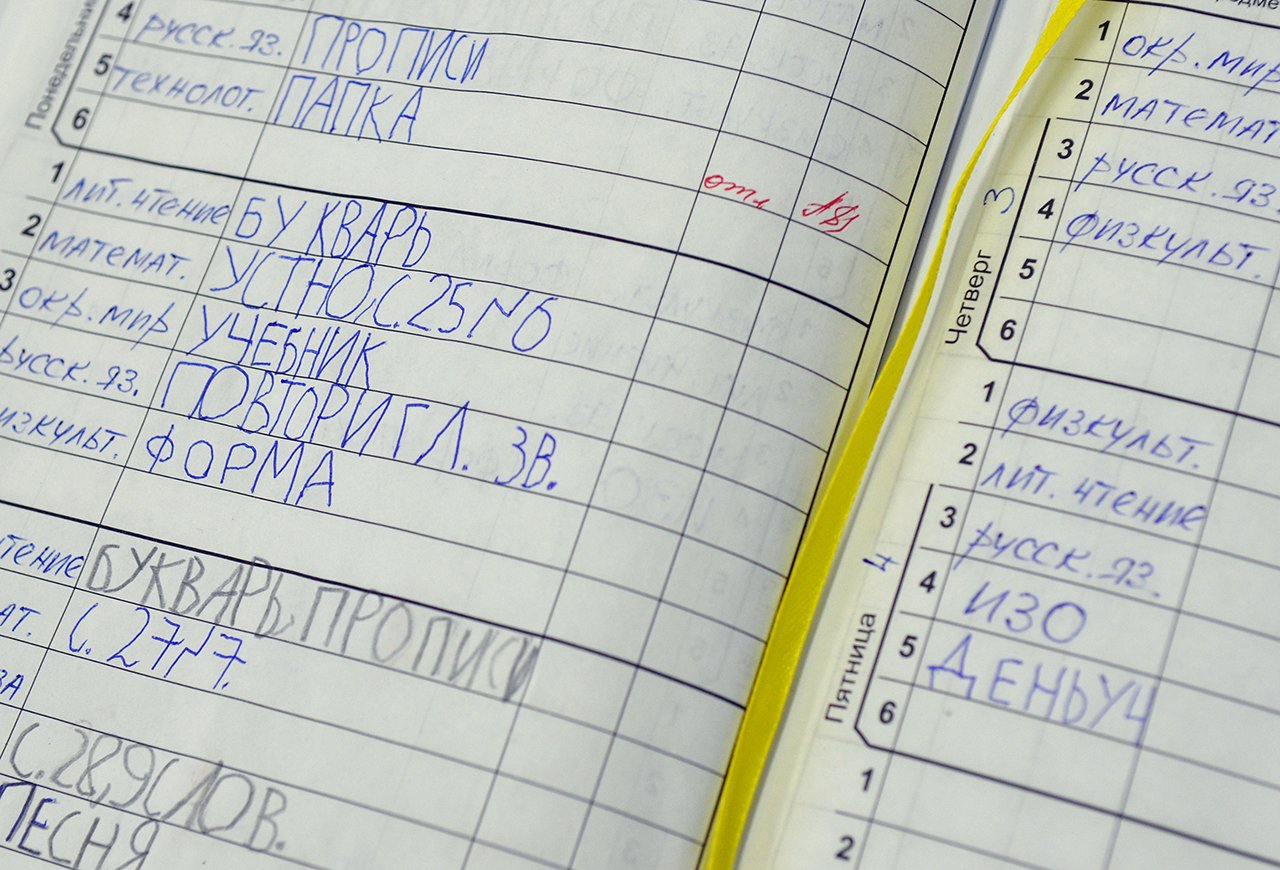 Понедельник
4 русск. яз. ПРОПИСИ
5 технолог. ПАПКА
6
отл
1 лит. чтение БУКВАРЬ
2 математ. УСТНО С.25 №6
3 окр. мир УЧЕБНИК
русск. яз. ПОВТОРИ ГЛ. ЗВ.
изкульт. ФОРМА
тение БУКВАРЬ, ПРОПИСИ
ат. С. 27 №7.
С. 28, 9 СЛОВ.
ПЕСНЯ
Четверг 3
1 окр. мир
2 математ
3 русск. яз.
4 физкульт.
5
6
Пятница 4
1 физкульт.
2 лит. чтение
3 русск. яз.
4 ИЗО
5 ДЕНЬ УЧ
6
1
2